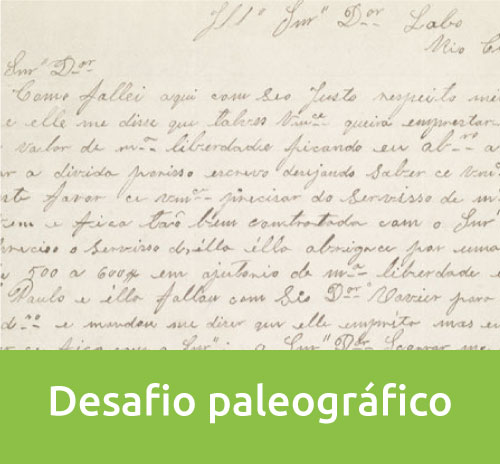 Ill.º Snr. D.or Lobo
Rio C
Snr. D.or
Como fallei aqui com Seo Justo respeito mi
e elle me disse que talvez Vm.ce queira emprestar
valor de m.ª liberdade ficando eu ab.º a
ar a divida porisso escrevo desejando Salzer ce Vm
favor ce vm.ce precizar do Servisso de m
tem e fica taõ bem contratada com o Snr
precizo o Servisso d'ella élla abrigace por uma
e 500 a 600$ em ajutorio da m.ª liberdade e
Paulo e élla fallou com Seo D.or Xavier para
d.ro e mandou me dizer que elle emprésta mas eu
Desafio paleográfico